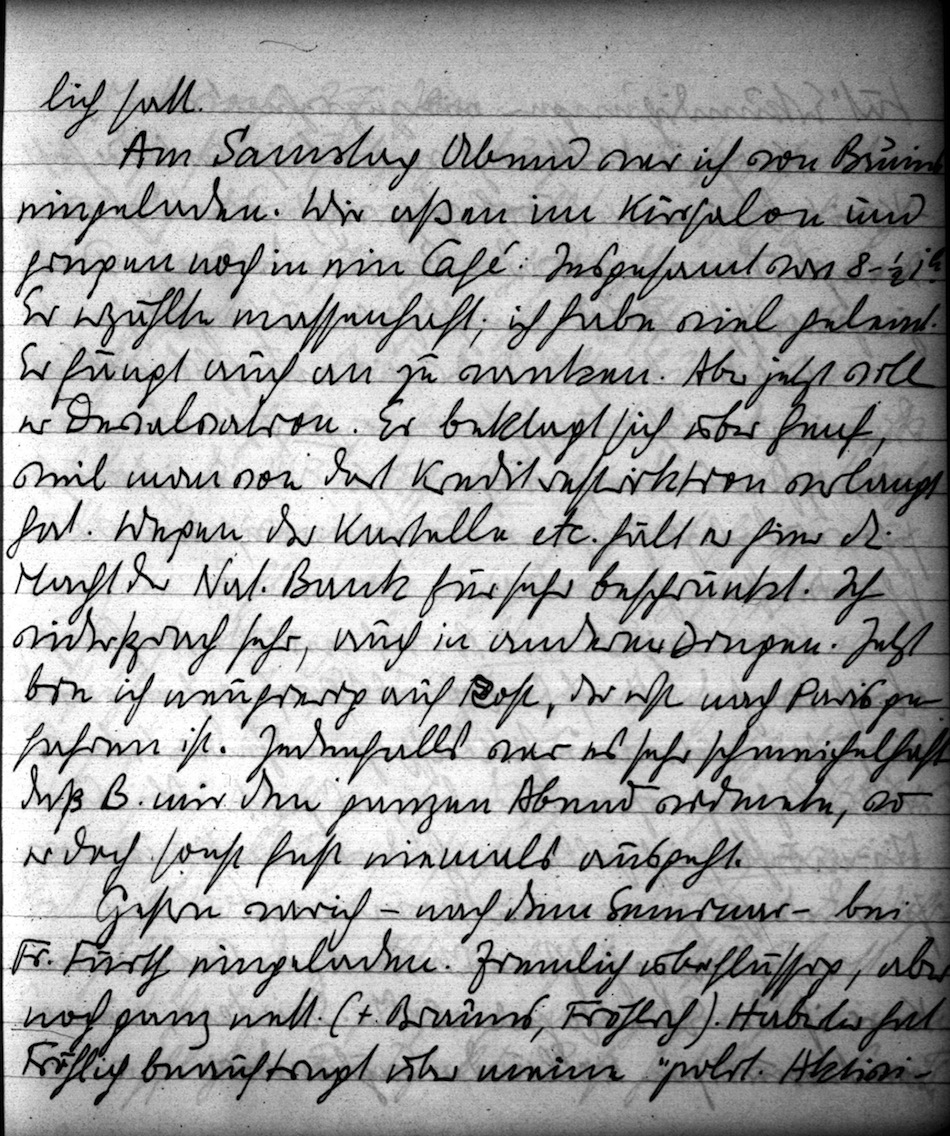 lich satt.
Am Samstag Abend war ich von Bruins
eingeladen. Wir aßen im Kursalon und
gingen noch in ein Café. Insgesamt von 8–½1h.
Er erzählte massenhaft; ich habe viel gelernt.
Er fängt auch an zu wanken. Aber jetzt will
er Devalvation. Er beklagt sich über Genf,
weil man von dort Kreditrestriktion verlangt
hat. Wegen der Kartelle etc. hält er hier d.
Macht der Nat. Bank für sehr beschränkt. Ich
widersprach sehr, auch in anderen Dingen. Jetzt
bin ich neugierig auf Rost, der erst nach Paris ge-
fahren ist. Jedenfalls war es sehr schmeichelhaft
daß B. mir den ganzen Abend widmete, wo
er doch sonst fast niemals ausgeht.
Gestern war ich – nach dem Seminar – bei
Fr. Fürth eingeladen. Ziemlich überflüssig, aber
noch ganz nett. (+ Brauns, Fröhlich). Haberler hat
Fröhlich beauftragt über meine "polit. Aktivi-